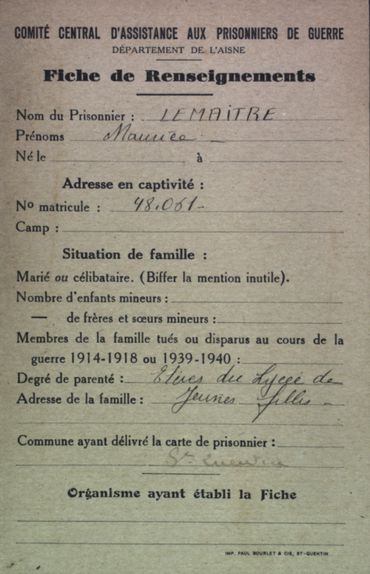 COMITÉ CENTRAL D'ASSISTANCE AUX PRISONNIERS DE GUERRE
DÉPARTEMENT DE L'AISNE
Fiche de Renseignements
Nom du Prisonnier : LEMAITRE
Prénoms Maurice
Né le à
Adresse en captivité :
No matricule : 48.061
Camp :
Situation de famille :
Marié ou célibataire. (Biffer la mention inutile).
Nombre d'enfants mineurs :
— de frères et sœurs mineurs :
Membres de la famille tués ou disparus au cours de la
guerre 1914-1918 ou 1939-1940 :
Degré de parenté : Elèves du Lycée de
Adresse de la famille : Jeunes filles
Commune ayant délivré la carte de prisonnier :
St Quentin
Organisme ayant établi la Fiche
IMP. PAUL BOURLET & CIE, ST-QUENTIN